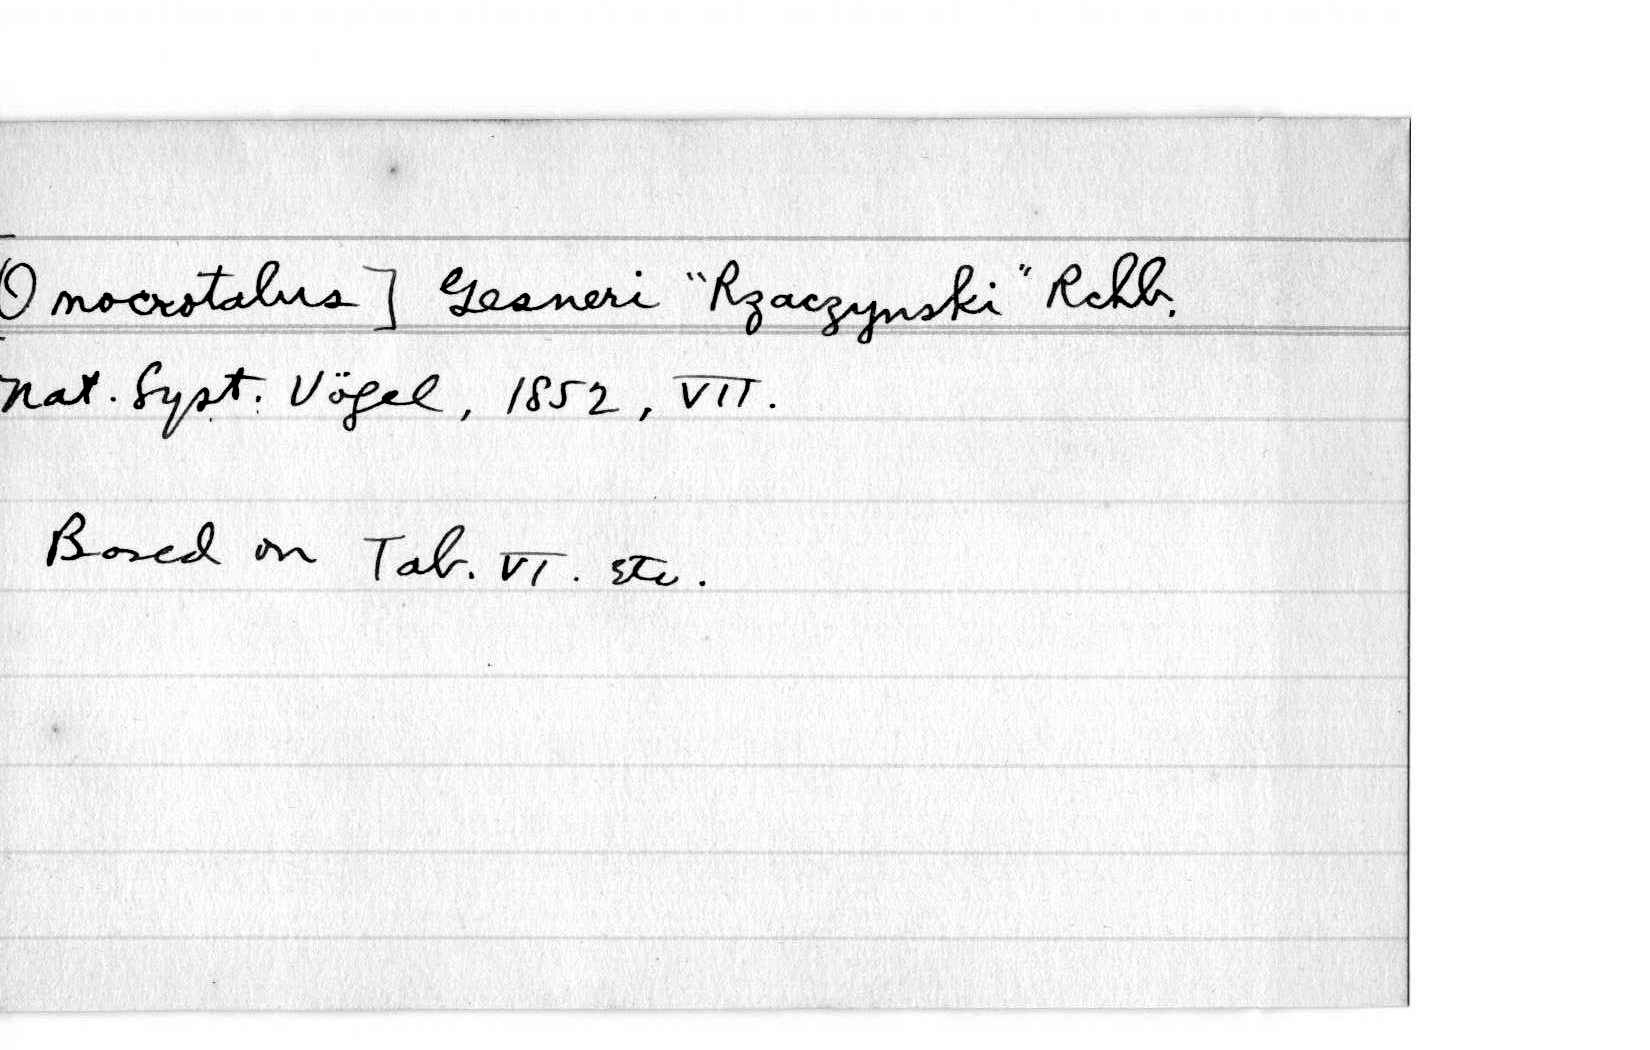 [Onocrotalus] Gesneri "Rzaczynski" Rchb.
Nat. Syst. Vögel, 1852, VII.
Based on Tab. VI. etc.